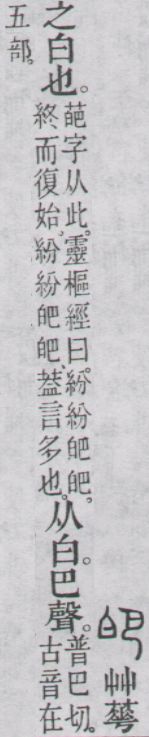 皅 艸蕐
之白也。葩字从此。靈樞經曰。紛紛皅皅，終而復始。紛紛皅皅，葢言多也。从白。巴聲。普巴切。古音在
五部。